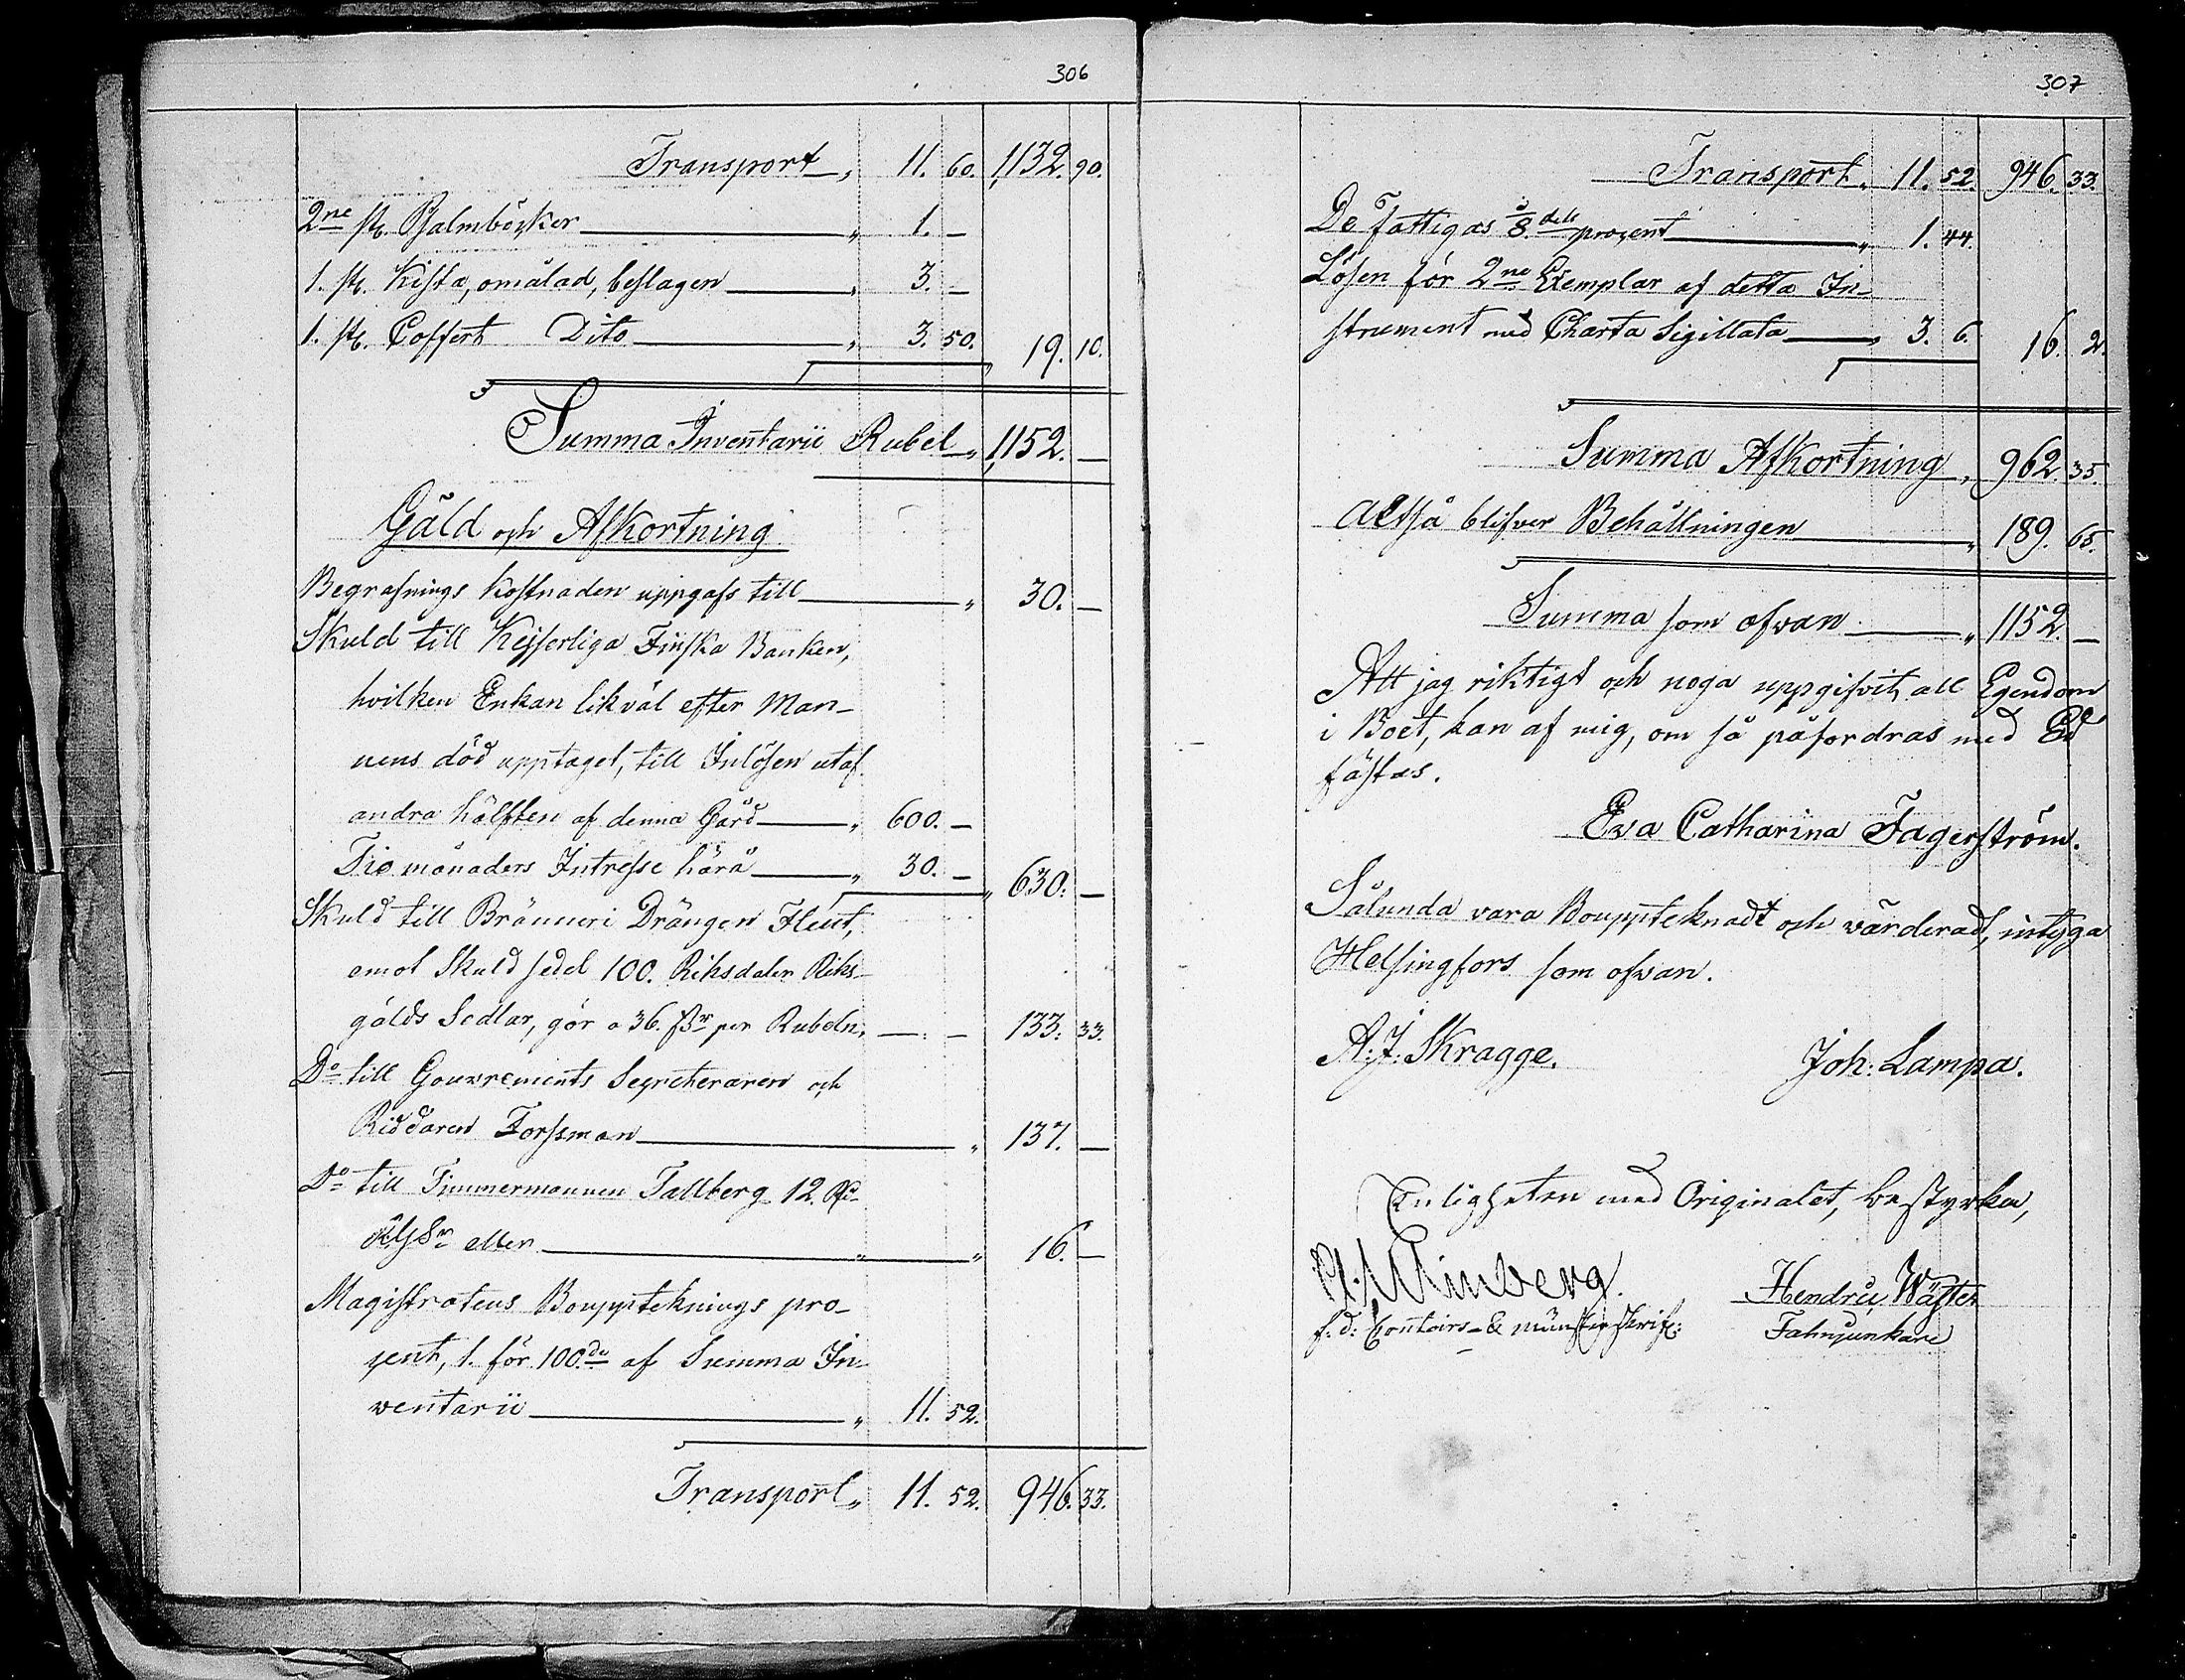 306
Transport „ 11. 60. 1,132. 90.
2ne st. Psalmböcker „ 1. —
1. st. Kista, omålad, beslagen „ 3. —
1. st. Coffert Dito „ 3. 50. 19. 10.
Summa Inventarii Rubel „ 1,152. —
Gäld och Afkortning
Begrafnings kostnaden uppgafs till „ 30. —
Skuld till Kejserliga Finska Banken,
hvilken Enkan likväl efter Man-
nens död upptaget, till Inlösen utaf
andra hälften af denna Gård „ 600. —
Tio månaders Intresse härå „ 30. — 630. —
Skuld till Bränneri Drängen Flent,
emot Skuldsedel 100. Riksdaler Riks-
gälds Sedlar, gör a 36. ßr per Rubeln, — . — 133. 33.
Do till Gouvrements Secreteraren och
Riddaren Forssman „ 137. —
Do till Timmermannen Tallberg 12. Rd
RgSr eller „ „ 16. —
Magistratens Bouppteknings pro-
cent, 1. för 100.de af Summa In-
ventarii „ 11. 52.
Transport „ 11. 52. 946. 33.
307
Transport „ 11. 52. 946. 33.
De Fattigas 1/8.dels procent „ 1. 44.
Lösen för 2ne Exemplar af detta In-
strument med Charta Sigillata „ 3. 6. 16. 2.
Summa Afkortning „ 962. 35.
Altså blifver Behållningen „ 189. 65.
Summa som ofvan „ 1152. —
Att jag riktigt och noga uppgifvit, all Egendom
i Boet, kan af mig, om så påfordras med Ed
fästas.
Eva Catharina Fagerström.
Sålunda vara Bouppteknadt och värderadt, intyga
Helsingfors som ofvan.
A: J: Skragge. Joh: Lampa.
Enligheten med Originalet, bestyrka,
Hendric Wäster
f: d: Contoirs- & Mönsterskrif: Fahnjunkare